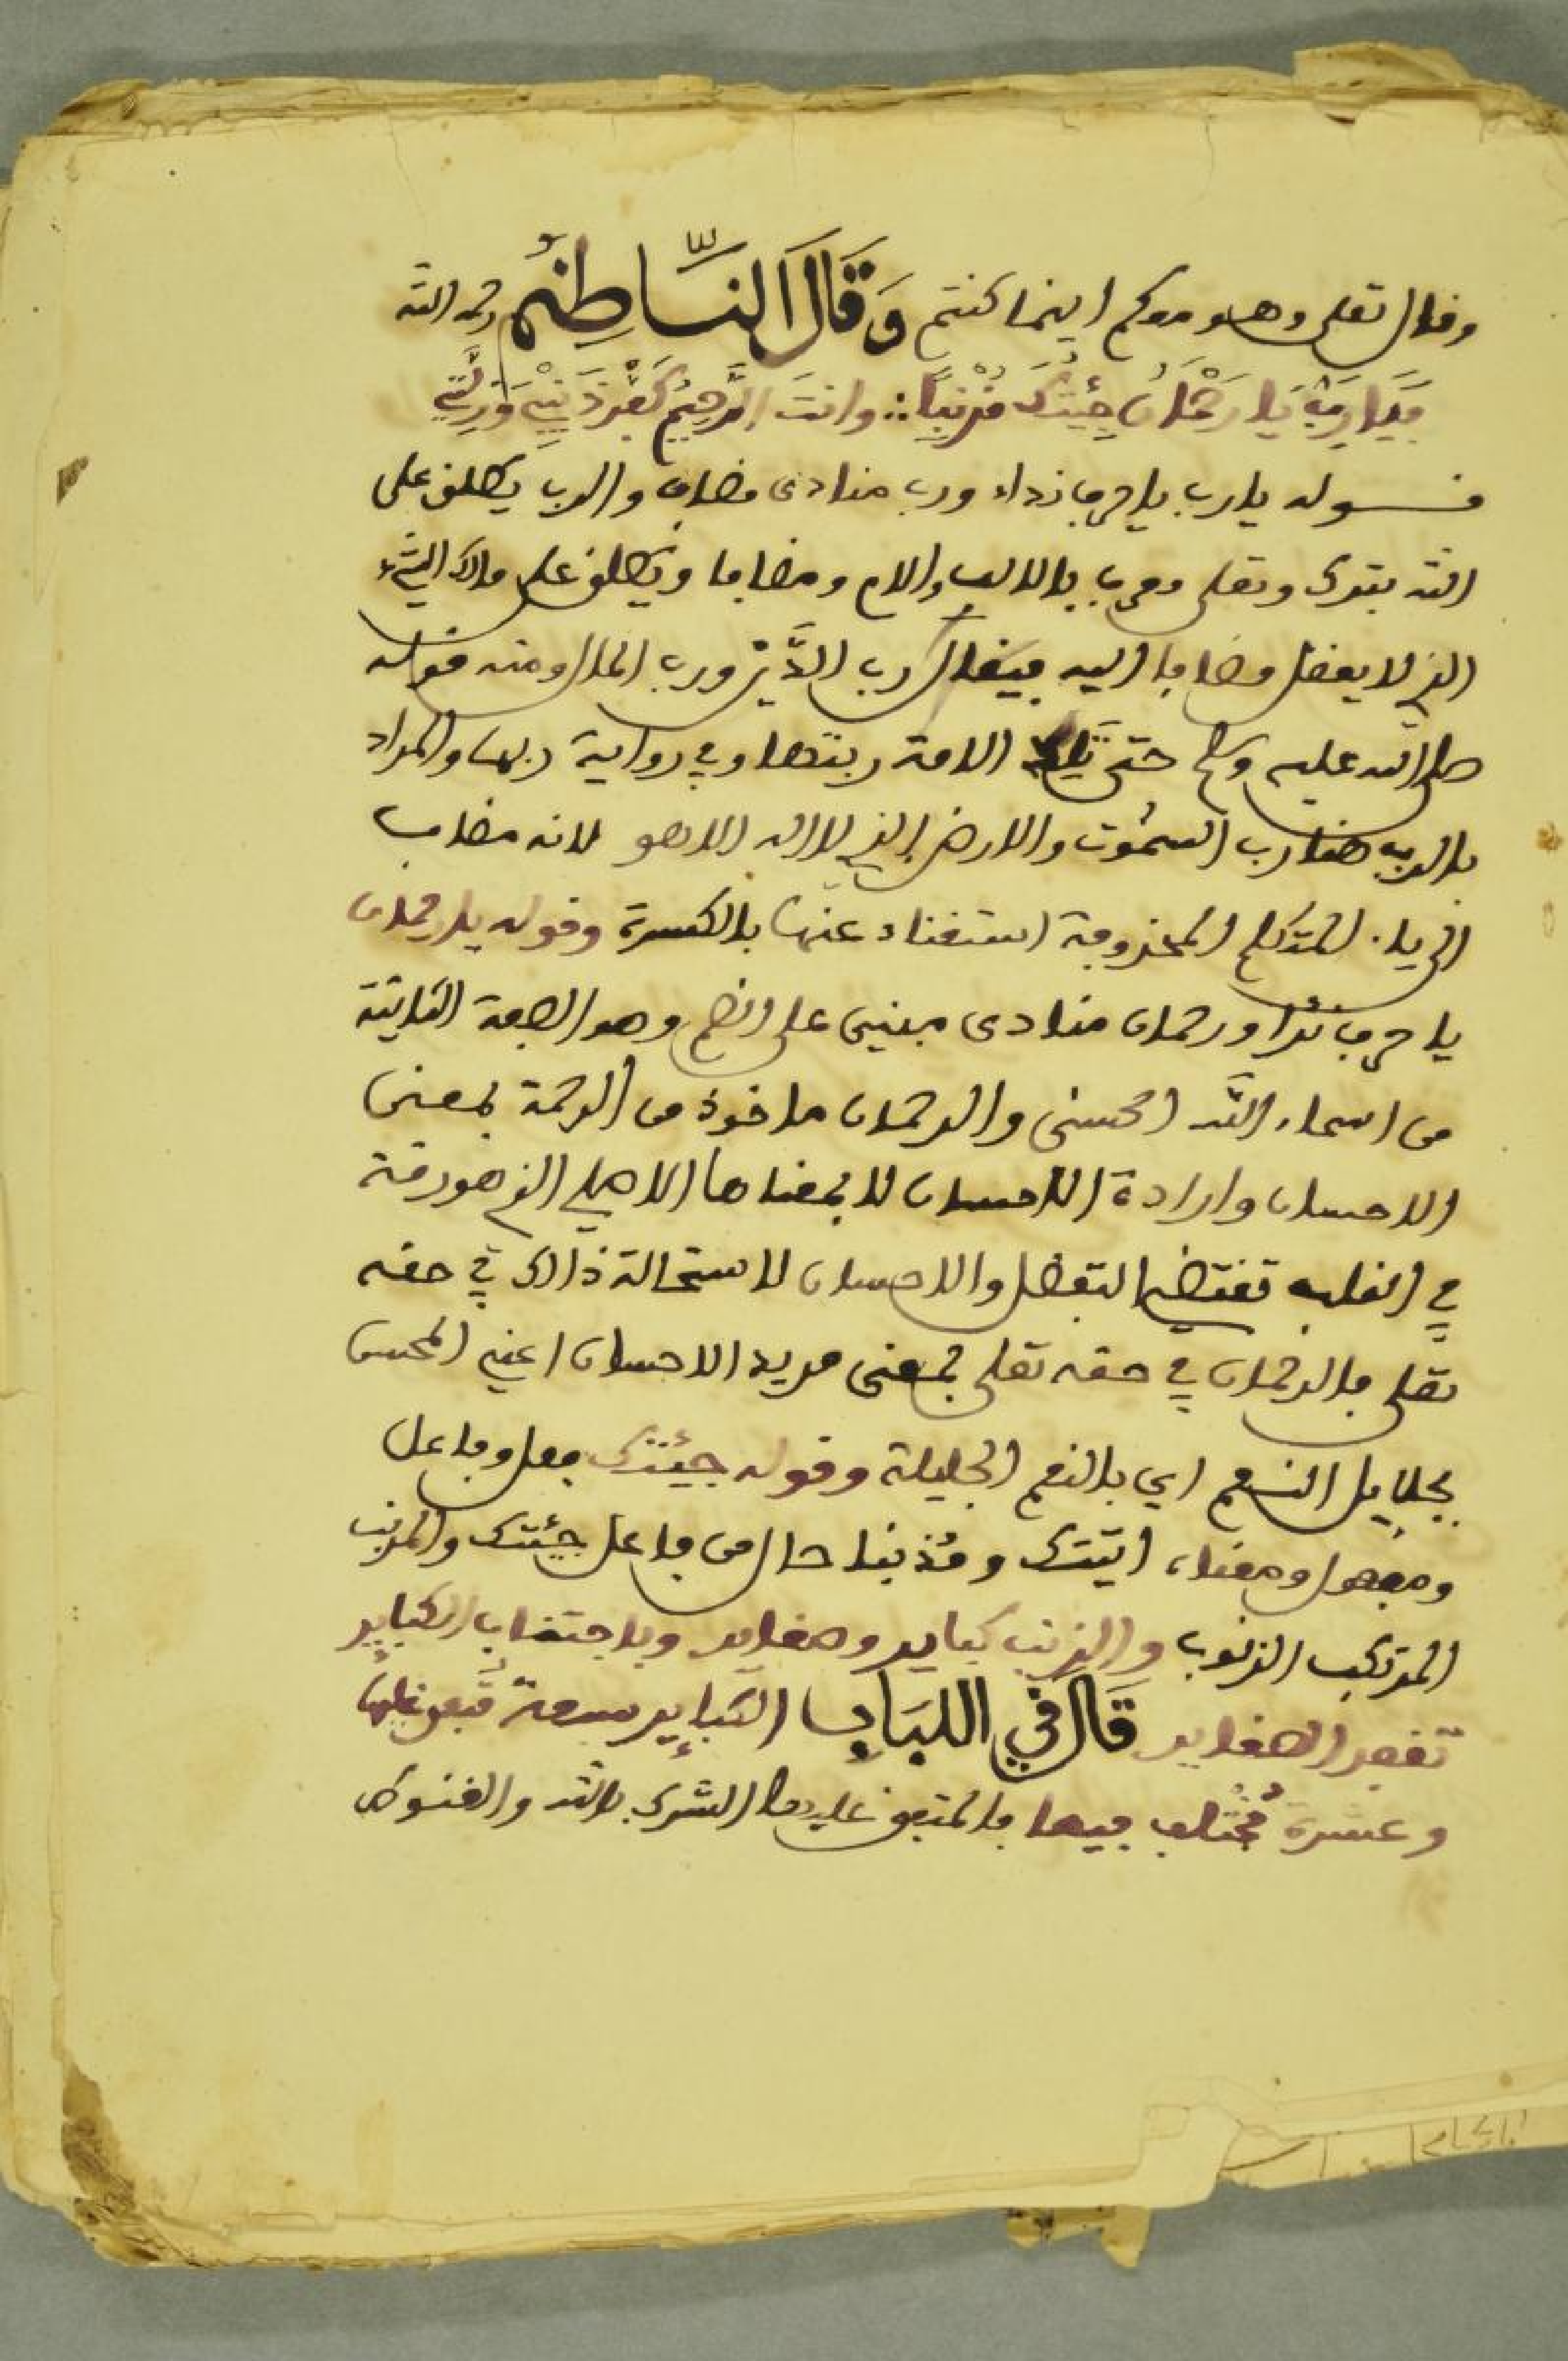 وقال تعلى وهو معكم اينما كنتم وَقَالَ النَّاظِمُ رحمه الله
فَيَا رَبِّ يَا رَحْمَانُ جِئْتُكَ مُذْنِبًا ∴ وانتَ الرَّحِيمُ
قوله يارب يا حرف نداء ورب منادى مضاف والرب يطلق على
الله تبرك وتعلى معرفا بالالف والام ومضافا ويطلق على مالك الشيء
الذي لا يعقل مضافا اليه فيقال رب الدَّين ورب المال ومنه قوله
صلى الله عليه وسلم حتى تلد الامة ربتها وفي رواية ربها والمراد
بالرب هنا رب السموت والارض الذي لا اله الا هو لانه مضاف
الى ياء المتكلم المحذوفة استغناء عنها بالكسرة وقوله يا رحمان
يا حرف ندا ورحمان منادى مبني على الضم وهو الصفة الثانية
من اسماء الله الحسنى والرحمان ماخوذ من الرحمة بمعنى
الاحسان وارادة الاحسان لا بمعناها الاصلي الذي هو رقة
في القلب تقتضي التفضل والاحسان لاستحالة ذالك في حقه
تعلى فالرحمان في حقه تعلى بمعنى مريد الاحسان اعني المحسن
بجلايل النعم اي بالنعم الجليلة وقوله جئتك فعل وفاعل
ومفعول ومعناه اتيتك ومُذنبا حال من فاعل جئتك والمذنب
المرتكب الذنوب والذنب كباير وصغاير وباجتناب الكباير
تغفر الصغاير قَالَ فِي اللبَابِ الكباير سبعة مُتَّفق عليها
وعشرة مُختلف فيها فالمتفق عليها الشرك بالله والقنوط